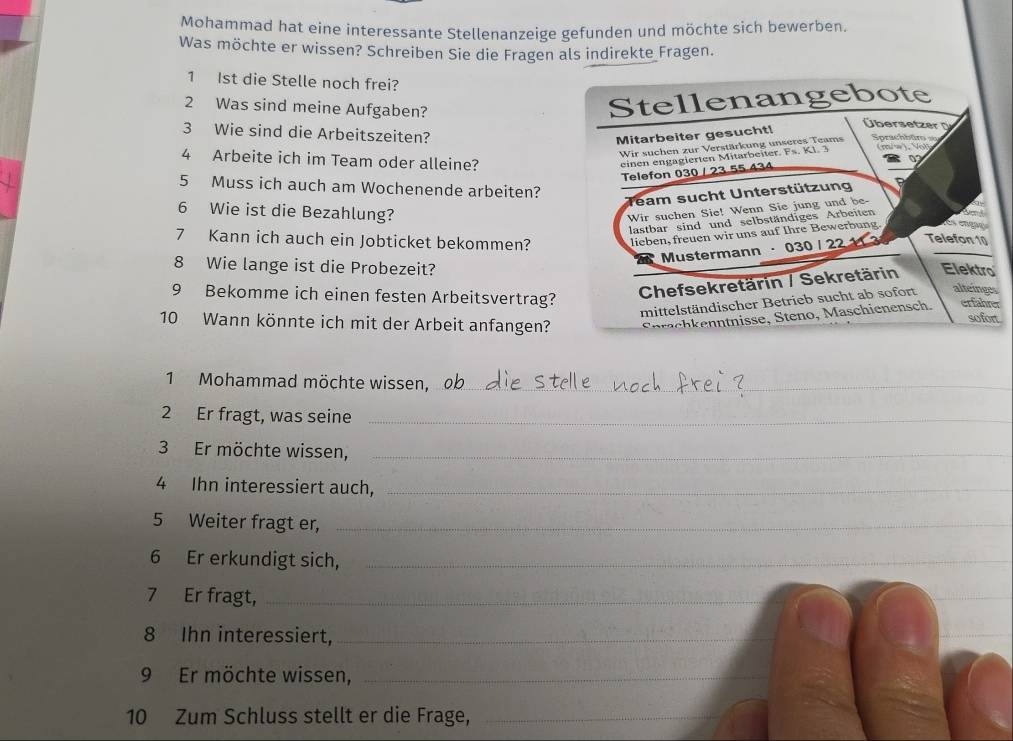 Mohammad hat eine interessante Stellenanzeige gefunden und möchte sich bewerben.
Was möchte er wissen? Schreiben Sie die Fragen als indirekte Fragen.
1 Ist die Stelle noch frei?
2 Was sind meine Aufgaben?
3 Wie sind die Arbeitszeiten?
4 Arbeite ich im Team oder alleine?
5 Muss ich auch am Wochenende arbeiten?
6 Wie ist die Bezahlung?
7 Kann ich auch ein Jobticket bekommen?
8 Wie lange ist die Probezeit?
9 Bekomme ich einen festen Arbeitsvertrag?
10 Wann könnte ich mit der Arbeit anfangen?
Stellenangebote
Mitarbeiter gesucht!
Wir suchen zur Verstärkung unseres Teams
einen engagierten Mitarbeiter. Fs. Kl. 3
Telefon 030 / 23 55 434
Team sucht Unterstützung
Wir suchen Sie! Wenn Sie jung und be-
lastbar sind und selbständiges Arbeiten
lieben, freuen wir uns auf Ihre Bewerbung.
Mustermann · 030 / 22 11 33
Chefsekretärin / Sekretärin
mittelständischer Betrieb sucht ab sofort
Sprachkenntnisse, Steno, Maschienensch.
Übersetzer
Sprachbüro
(m/w),
Telefon 10
Elektro
alteinges
erfahren
sofort
1 Mohammad möchte wissen, ob die stelle noch frei?
2 Er fragt, was seine
3 Er möchte wissen,
4 Ihn interessiert auch,
5 Weiter fragt er,
6 Er erkundigt sich,
7 Er fragt,
8 Ihn interessiert,
9 Er möchte wissen,
10 Zum Schluss stellt er die Frage,